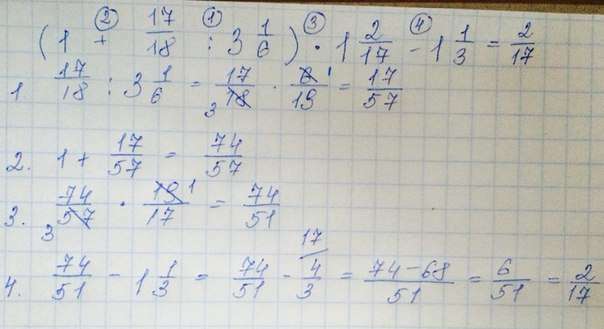 ② ① ③ ④
(1 + 17/18 : 3 1/6) · 1 2/17 - 1 1/3 = 2/17
1 17/18 : 3 1/6 = 17/18 3 · 6/19 1 = 17/57
2. 1 + 17/57 = 74/57
3. 74/57 3 · 19/17 1 = 74/51
4. 74/51 - 1 1/3 = 74/51 - 4/3 17 = 74-68/51 = 6/51 = 2/17